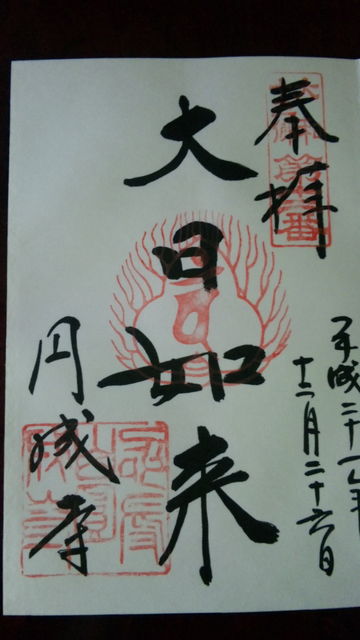 奉拝
平成二十
十二月二十六日
大日如来
円成寺